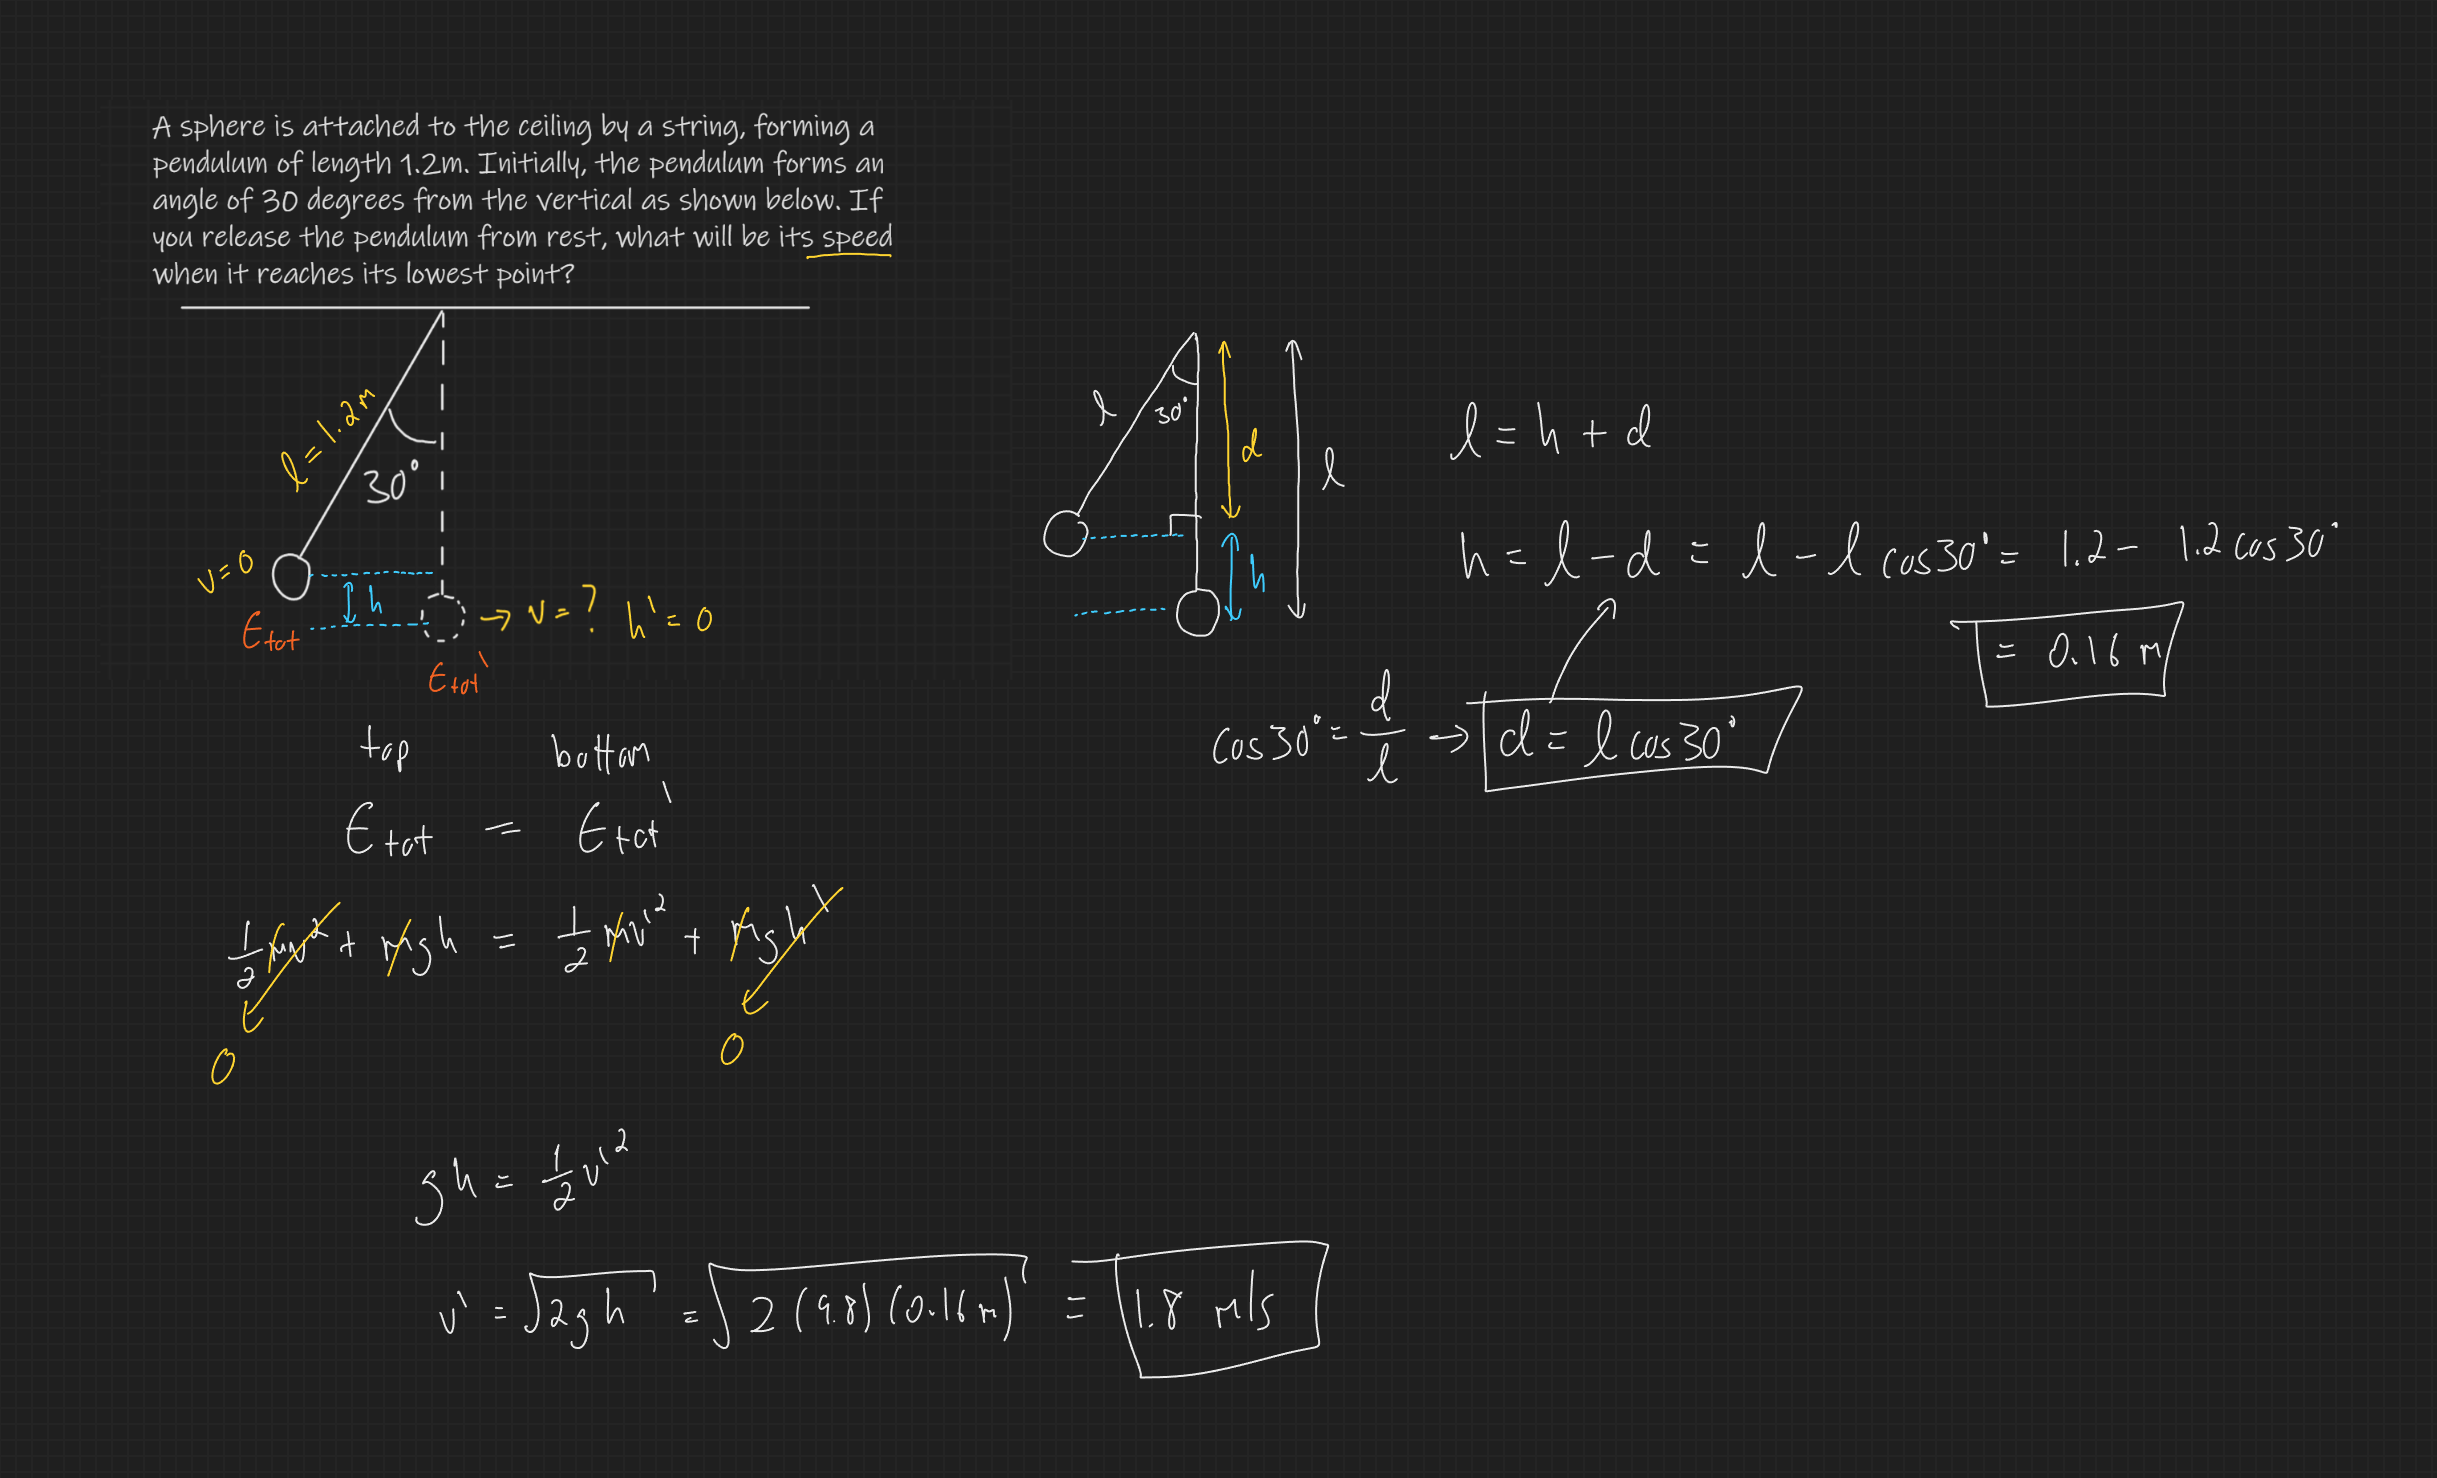 A sphere is attached to the ceiling by a string, forming a
pendulum of length 1.2m. Initially, the pendulum forms an
angle of 30 degrees from the vertical as shown below. If
you release the pendulum from rest, what will be its speed
when it reaches its lowest point?
l = 1.2m
30°
v=0
h
Etot
→ v = ? h' = 0
Etot'
top bottom
Etot = Etot'
1/2 mv² + mgh = 1/2 mv'² + mgh'
0 0
gh = 1/2 v'²
v' = √2gh = √2(9.8)(0.16m) = 1.8 m/s
l
30°
d
l
h
l = h + d
h = l - d = l - l cos30° = 1.2 - 1.2 cos30°
= 0.16 m
cos30° = d/l → d = l cos30°